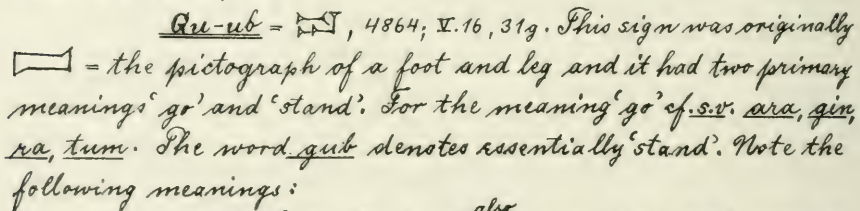 Gu-ub = 𒁺, 4864; V. 16, 31g. This sign was originally
= the pictograph of a foot and leg and it had two primary
meanings 'go' and 'stand'. For the meaning 'go' cf. s.v. ara, gin,
ra, tum. The word gub denotes essentially 'stand'. Note the
following meanings:
also